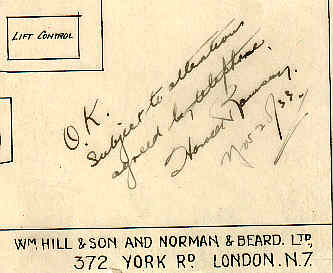 LIFT CONTROL
O.K.
Subject to alterations
agreed by telephone.
Nov 2/33.
WM HILL & SON AND NORMAN & BEARD. LTD,
372 YORK RD LONDON. N.7.